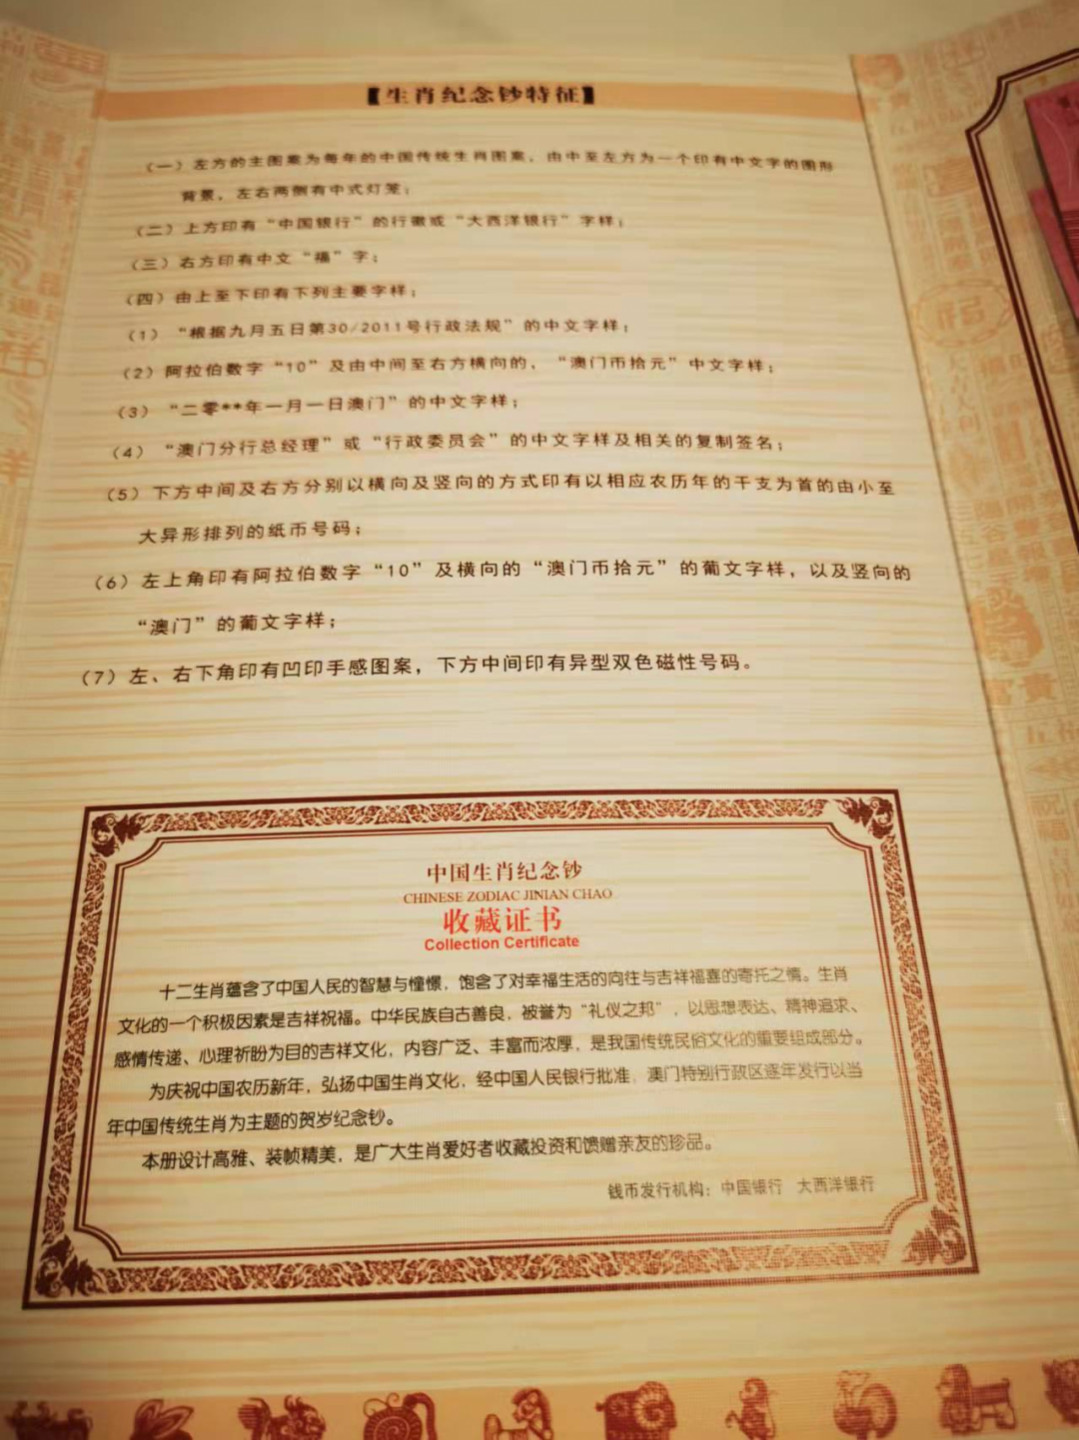 【生肖纪念钞特征】
（一）左方的主图案为每年的中国传统生肖图案，由中至左方为一个印有中文字的图形
背景，左右两侧有中式灯笼；
（二）上方印有“中国银行”的行徽或“大西洋银行”字样；
（三）右方印有中文“福”字；
（四）由上至下印有下列主要字样；
（1）“根据九月五日第30/2011号行政法规”的中文字样；
（2）阿拉伯数字“10”及由中间至右方横向的，“澳门币拾元”中文字样；
（3）“二零**年一月一日澳门”的中文字样；
（4）“澳门分行总经理”或“行政委员会”的中文字样及相关的复制签名；
（5）下方中间及右方分别以横向及竖向的方式印有以相应农历年的干支为首的由小至
大异形排列的纸币号码；
（6）左上角印有阿拉伯数字“10”及横向的“澳门币拾元”的葡文字样，以及竖向的
“澳门”的葡文字样；
（7）左、右下角印有凹印手感图案，下方中间印有异型双色磁性号码。
中国生肖纪念钞
CHINESE ZODIAC JINIAN CHAO
收藏证书
Collection Certificate
十二生肖蕴含了中国人民的智慧与憧憬，饱含了对幸福生活的向往与吉祥福喜的寄托之情。生肖
文化的一个积极因素是吉祥祝福。中华民族自古善良，被誉为“礼仪之邦”，以思想表达、精神追求、
感情传递、心理祈盼为目的吉祥文化，内容广泛、丰富而浓厚，是我国传统民俗文化的重要组成部分。
为庆祝中国农历新年，弘扬中国生肖文化，经中国人民银行批准，澳门特别行政区逐年发行以当
年中国传统生肖为主题的贺岁纪念钞。
本册设计高雅、装帧精美，是广大生肖爱好者收藏投资和馈赠亲友的珍品。
钱币发行机构：中国银行 大西洋银行
富貴